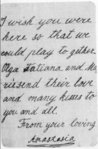 I wish you were
here so that we
could play to gether.
Olga Tatiana and Ma
rie send their love
and many kisses to
you and all.
From your loving
Anastasia